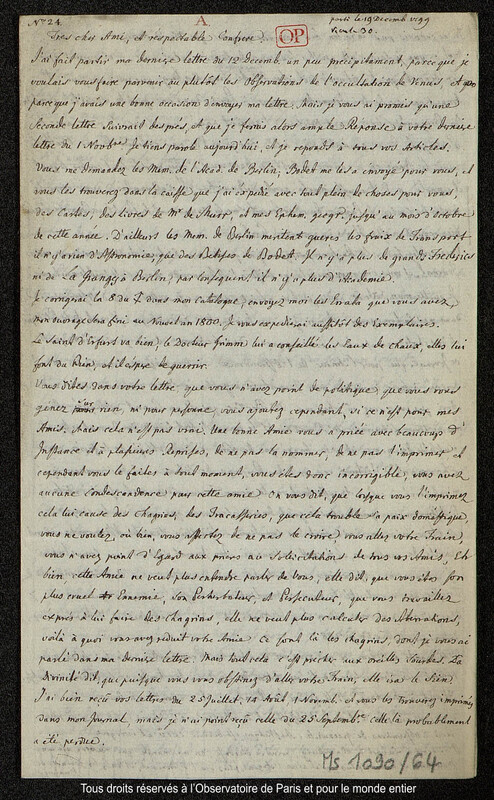 N° 24.
A
OP
parti le 19 Decemb. 1799
Tres cher Ami, et respectable Confrere.
J'ai fait partir ma derniere lettre du 12 Decemb. un peu précipitament, parce que je
voulais vous faire parvenir au plutôt les Observations de l'occultation de Venus, et
parce que j'avais une bonne occasion d'envoyer ma lettre. Mais je vous ai promis qu'une
seconde lettre suivrait de près, et que je ferais alors ample Reponse à votre derniere
lettre du 1 Novbre. Je tiens parole aujourd'hui, et je reponds à tous vos Articles.
Vous me demandez les Mem. de l'Acad. de Berlin, Bode me les a envoyé pour vous, et
vous les trouverez dans la caisse que j'ai expedié avec tout plein de choses pour vous,
des Cartes, des livres de Mr de Murr, et mes Ephem. geogr. jusqu'au mois d'octobre
de cette année. D'ailleurs les Mem. de Berlin meritent gueres les fraix de Transport
il n'y a rien d'Astronomie, que des Betises de Bode. Il n'y a plus de grands Frederics
ni de La Granges à Berlin, par consequent il n'y a plus d'Academie.
Je corrigerai la 8 du 7 dans mon Catalogue, envoyez moi les Errata que vous avez,
mon ouvrage sera fini au Nouvel an 1800. Je vous expedierai aussitôt des Exemplaires.
Le Saint d'Erfurt va bien, le Docteur Grimm lui a conseillé les Eaux de chaux, elles lui
font du Bien, et il espere de guerir.
Vous dites dans votre lettre que vous n'avez point de politique, que vous vous
genez pour rien, ni pour personne, vous ajoutez cependant, si ce n'est pour mes
Amis. Mais cela n'est pas vrai. Une bonne Amie vous a priée avec beaucoup d'
Instance et à plusieurs Reprises, de ne pas la nommer, de ne pas l'imprimer et
cependant vous le faites à tout moment, vous êtes donc incorrigible, vous avez
aucune Condescendance pour cette amie. On vous dit, que lorsque vous l'imprimez
cela lui cause des Chagrins, des Tracasseries, que cela trouble la paix domestique,
vous ne voulez, où bien, vous affectez de ne pas le croire, vous allez votre Train,
vous n'avez point d'Egard aux prieres au Sollicitations de tous vos Amis, Eh
bien, cette Amie ne veut plus entendre parler de vous, elle dit, que vous êtes son
plus cruel Ennemie, son Perturbateur, et Persecuteur, que vous travaillez
exprès à lui faire des Chagrins, elle ne veut plus calculer des Aberrations,
voilà à quoi vous avez reduit votre Amie. Ce sont là les chagrins, dont je vous ai
parlé dans ma derniere lettre. Mais tout cela c'est prêcher aux oreilles Sourdes. La
Divinité dit, que puisque vous vous obstinez d'aller votre Train, elle ira le Sien.
J'ai bien reçû vos lettres du 25 Juillet, 14 Août, 1 Novemb. et vous les trouverez imprimées
dans mon Journal, mais je n'ai point reçû celle du 25 Septembre celle là probablement
a été perdue.
Ms 1090/64
Tous droits réservés à l'Observatoire de Paris et pour le monde entier